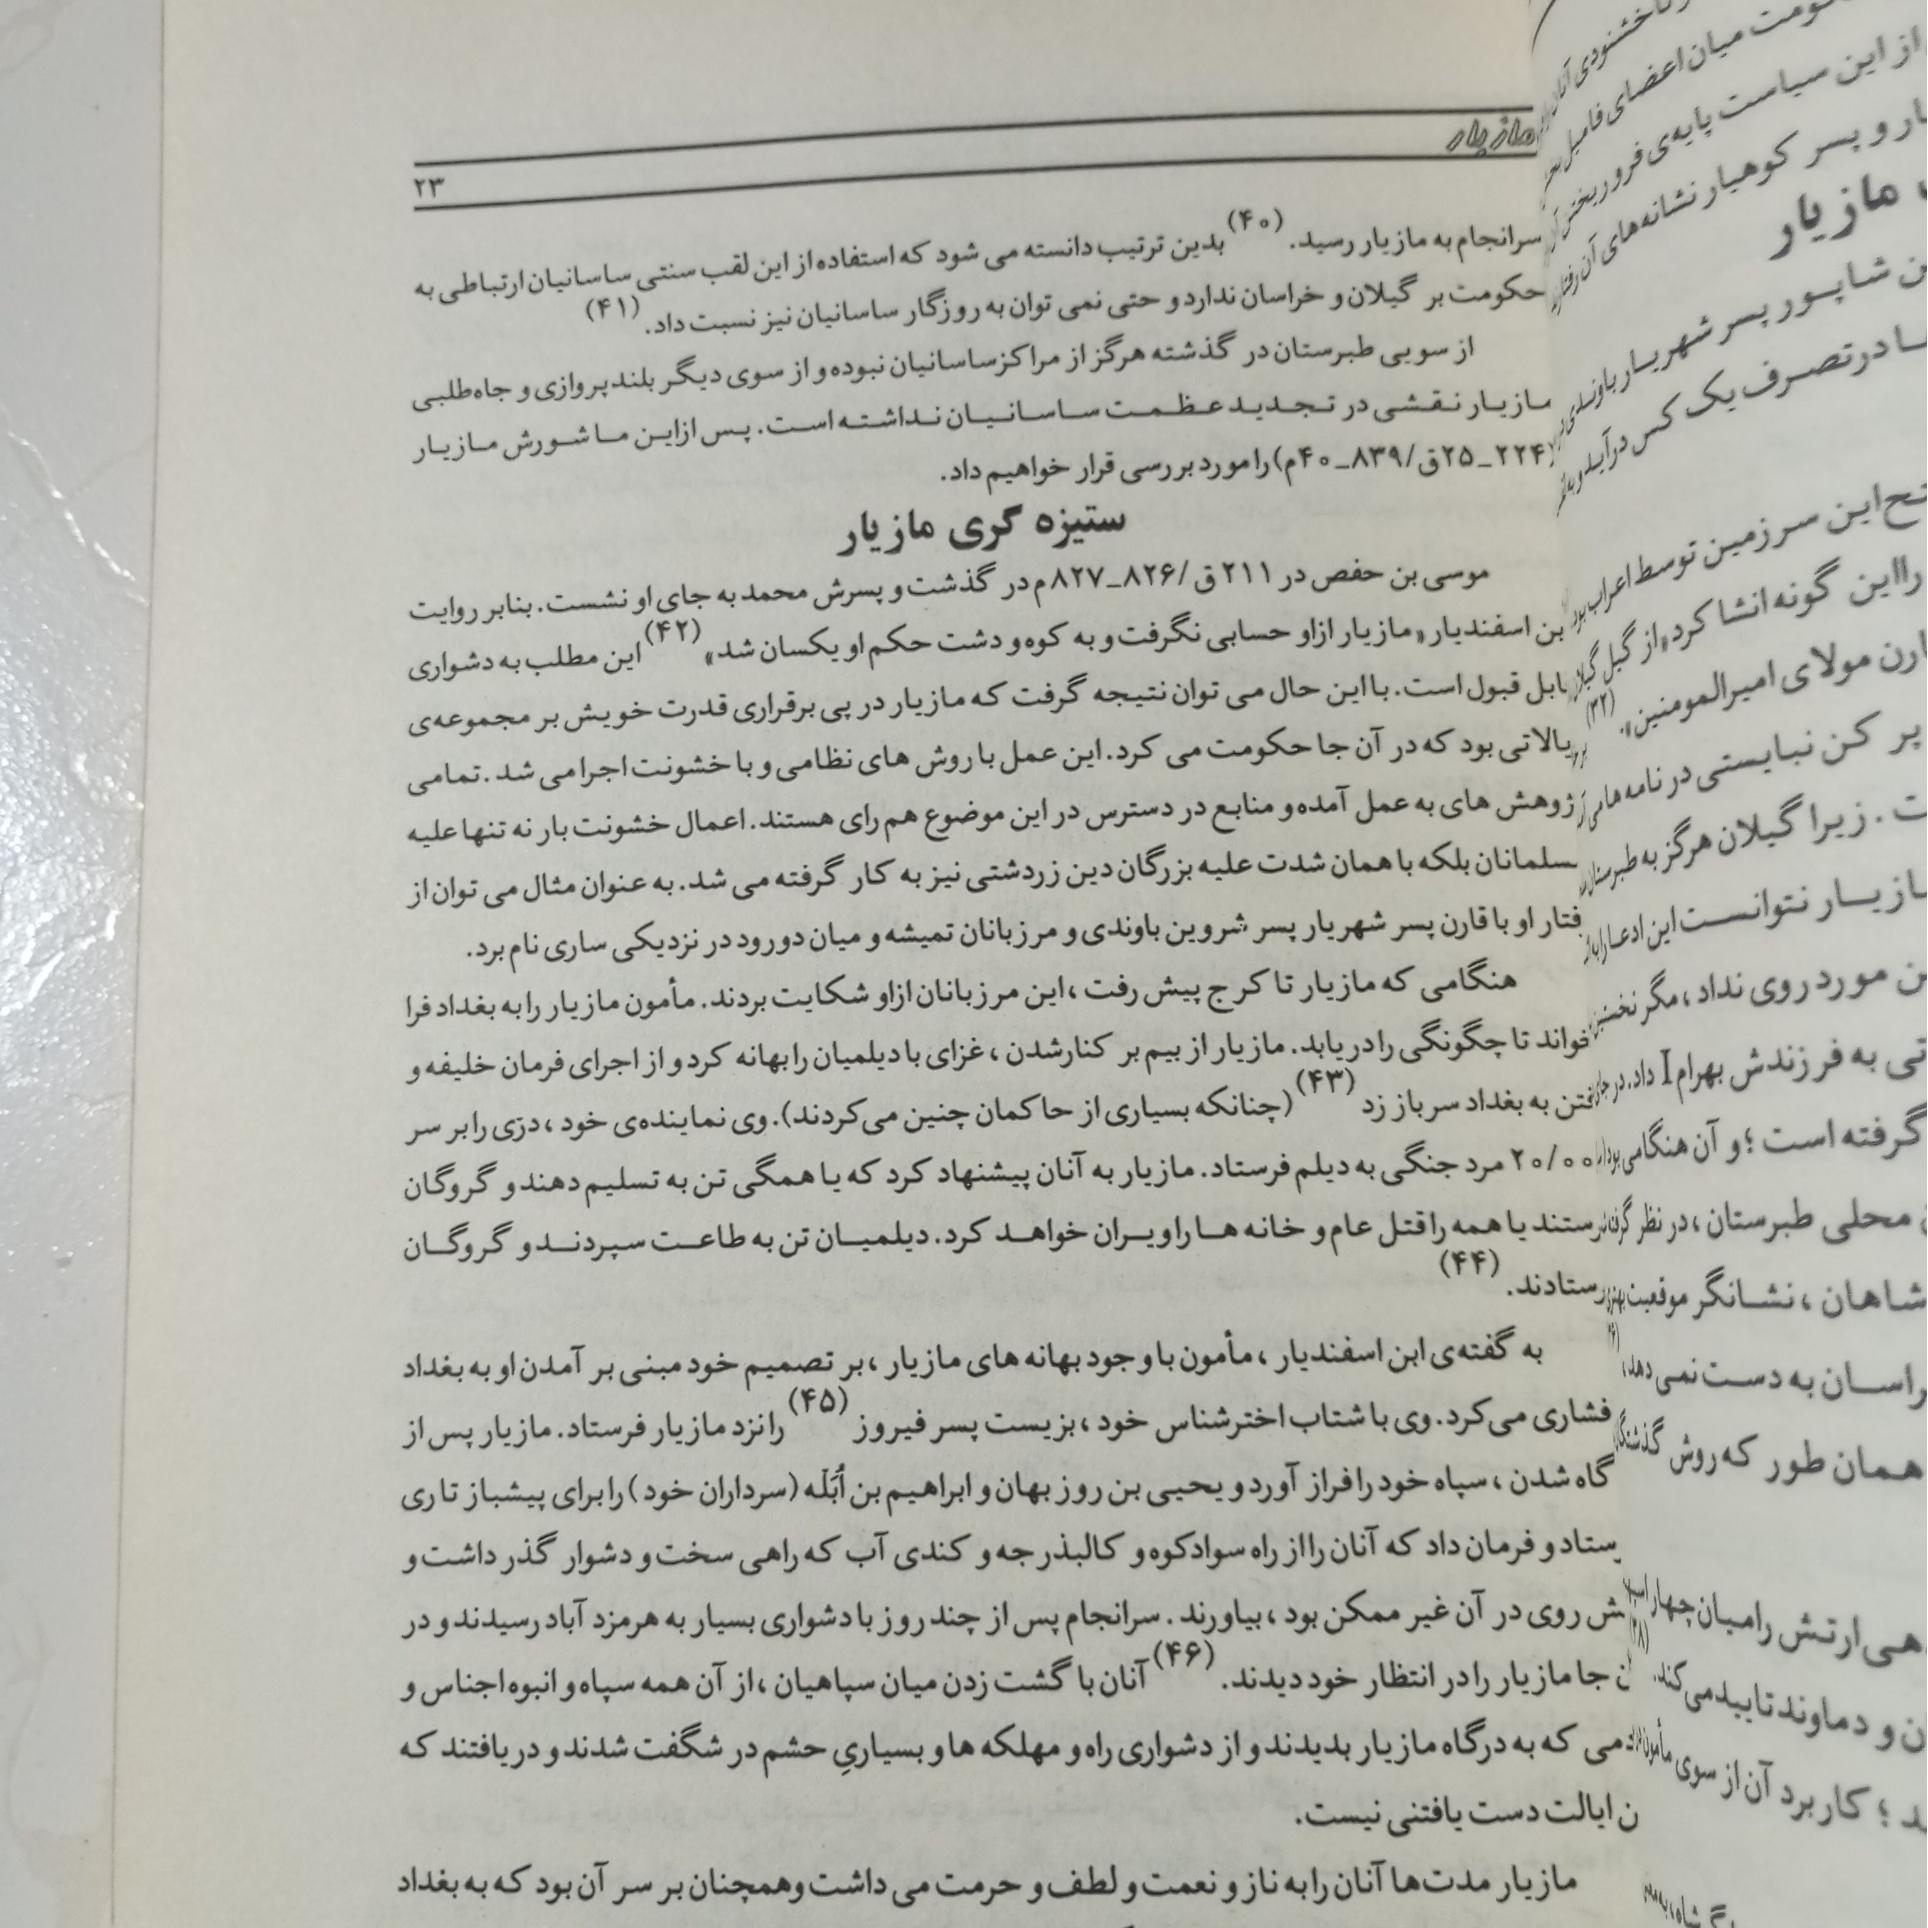 مازیار
۲۳
سرانجام به مازیار رسید. (۴۰) بدین ترتیب دانسته می شود که استفاده از این لقب سنتی ساسانیان ارتباطی به
حکومت بر گیلان و خراسان ندارد و حتی نمی توان به روزگار ساسانیان نیز نسبت داد. (۴۱)
از سویی طبرستان در گذشته هرگز از مراکز ساسانیان نبوده و از سوی دیگر بلندپروازی و جاه‌طلبی
مازیار نقشی در تجدید عظمت ساسانیان نداشته است. پس ازاین ما شورش مازیار
(۲۲۴_۲۵ق/۸۳۹_۴۰م) را مورد بررسی قرار خواهیم داد.
ستیزه گری مازیار
موسی بن حفص در ۲۱۱ ق /۸۲۶_۸۲۷م در گذشت و پسرش محمد به جای او نشست. بنابر روایت
بن اسفندیار «مازیار ازاو حسابی نگرفت و به کوه و دشت حکم او یکسان شد» (۴۲) این مطلب به دشواری
ابل قبول است. با این حال می توان نتیجه گرفت که مازیار در پی برقراری قدرت خویش بر مجموعه‌ی
یالاتی بود که در آن جا حکومت می کرد. این عمل با روش های نظامی و با خشونت اجرا می شد. تمامی
ژوهش های به عمل آمده و منابع در دسترس در این موضوع هم رای هستند. اعمال خشونت بار نه تنها علیه
سلمانان بلکه با همان شدت علیه بزرگان دین زردشتی نیز به کار گرفته می شد. به عنوان مثال می توان از
فتار او با قارن پسر شهریار پسر شروین باوندی و مرزبانان تمیشه و میان دورود در نزدیکی ساری نام برد.
هنگامی که مازیار تا کرج پیش رفت، این مرزبانان ازاو شکایت بردند. مأمون مازیار را به بغداد فرا
خواند تا چگونگی را دریابد. مازیار از بیم بر کنارشدن، غزای با دیلمیان را بهانه کرد و از اجرای فرمان خلیفه و
فتن به بغداد سرباز زد (۴۳) (چنانکه بسیاری از حاکمان چنین می‌کردند). وی نماینده‌ی خود، دزی را بر سر
۲۰/۰۰۰ مرد جنگی به دیلم فرستاد. مازیار به آنان پیشنهاد کرد که یا همگی تن به تسلیم دهند و گروگان
رستند یا همه را قتل عام و خانه ها را ویران خواهد کرد. دیلمیان تن به طاعت سپردند و گروگان
رستادند. (۴۴)
به گفته‌ی ابن اسفندیار، مأمون با وجود بهانه های مازیار، بر تصمیم خود مبنی بر آمدن او به بغداد
فشاری می‌کرد. وی با شتاب اخترشناس خود، بزیست پسر فیروز (۴۵) را نزد مازیار فرستاد. مازیار پس از
گاه شدن، سپاه خود را فراز آورد و یحیی بن روز بهان و ابراهیم بن اُبَلّه (سرداران خود) را برای پیشباز تا ری
ستاد و فرمان داد که آنان را از راه سوادکوه و کالبذرجه و کندی آب که راهی سخت و دشوار گذر داشت و
ش روی در آن غیر ممکن بود، بیاورند. سرانجام پس از چند روز با دشواری بسیار به هرمزد آباد رسیدند و در
ن جا مازیار را در انتظار خود دیدند. (۴۶) آنان با گشت زدن میان سپاهیان، از آن همه سپاه و انبوه اجناس و
دمی که به درگاه مازیار بدیدند و از دشواری راه و مهلکه ها و بسیاریِ حشم در شگفت شدند و دریافتند که
ن ایالت دست یافتنی نیست.
مازیار مدت‌ها آنان را به ناز و نعمت و لطف و حرمت می داشت وهمچنان بر سر آن بود که به بغداد
خشنودی آنان
ومت میان اعضای فامیل
از این سیاست پایه‌ی فروریختن
ار و پسر کوهیار نشانه‌های آن
مازیار
ن شاپور پسر شهریار باوندی
ا درتصرف یک کس درآید و
تح این سرزمین توسط اعراب بود
را این گونه انشا کرد «از گیل گیلان
ارن مولای امیرالمومنین». (۳۲)
پر کن نبایستی در نامه های
ت. زیرا گیلان هرگز به طبرستان
ازیار نتوانست این ادعا را
ن مورد روی نداد، مگر نخستین
تی به فرزندش بهرام I داد. در
گرفته است؛ و آن هنگامی بود
محلی طبرستان، در نظر
شاهان، نشانگر موقعیت
راسان به دست نمی دهد،
همان طور که روش گذشتگان
هی ارتش را میان چهار
ن و دماوند تایید می‌کند.
د؛ کاربرد آن از سوی مأمون